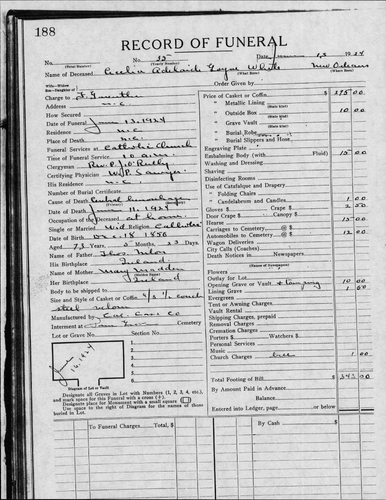 188
RECORD OF FUNERAL
No. 15 Date 13 1924
(Total Number) (Yearly Number)
Name of Deceased Adelaide White New Orleans
(What Race) (Where Born)
Wife—Widow
Son—Daughter of
Charge to
Address N.C.
How Secured
Date of Funeral June 13, 1924
Residence N.C.
Place of Death N.C.
Funeral Services at Catholic Church
Time of Funeral Service 10 am
Clergyman Rev. P. J. O'Reilly
Certifying Physician W. P. Sawyer
His Residence N.C.
Number of Burial Certificate
Cause of Death
Date of Death June 11, 1924
Occupation of the Deceased at home
Single or Married Wid Religion Catholic
Date of Birth Dec 18 1850
Aged 73 Years, 5 Months 23 Days
Name of Father Thos.
His Birthplace Ireland
Name of Mother Mary Madden
Her Birthplace Ireland
Body to be shipped to
Size and Style of Casket or Coffin couch
steel
Manufactured by Case Co
Interment at Cemetery
Lot or Grave No. Section No.
June 16, 1924
1.
2.
3.
4.
5.
6.
Diagram of Lot or Vault
Designate all Graves in Lot with Numbers (1, 2, 3, 4, etc.),
and mark space for this Funeral with a cross (+).
Designate place for Monument with a small square
Use space to the right of Diagram for the names of those
buried in Lot.
Price of Casket or Coffin $375 00
" Metallic Lining
" Outside Box 10 00
" Grave Vault
" Burial Robe
" Burial Slippers and Hose
Engraving Plate
Embalming Body (with Fluid) 15 00
Washing and Dressing
Shaving
Disinfecting Rooms
Use of Catafalque and Drapery
" Folding Chairs
" Candelabrum and Candles 1 00
Gloves $ Crape $ 2 50
Door Crape $ Canopy $
Hearse 15 00
Carriages to Cemetery @
Automobiles to Cemetery @ 12 00
Wagon Deliveries
City Calls (Coaches)
Death Notices in Newspapers
(Name of Newspapers)
Flowers
Outlay for Lot
Opening Grave or Vault 10 00
Lining Grave 1 00
Evergreen
Tent or Awning Charges
Vault Rental
Shipping Charges, prepaid
Removal Charges
Cremation Charges
Porters $ Watchers $
Personal Services
Music
Church Charges bell 1 00
Total Footing of Bill $
By Amount Paid in Advance
Balance
Entered into Ledger, page or below
To Funeral Charges Total, $ By Cash $